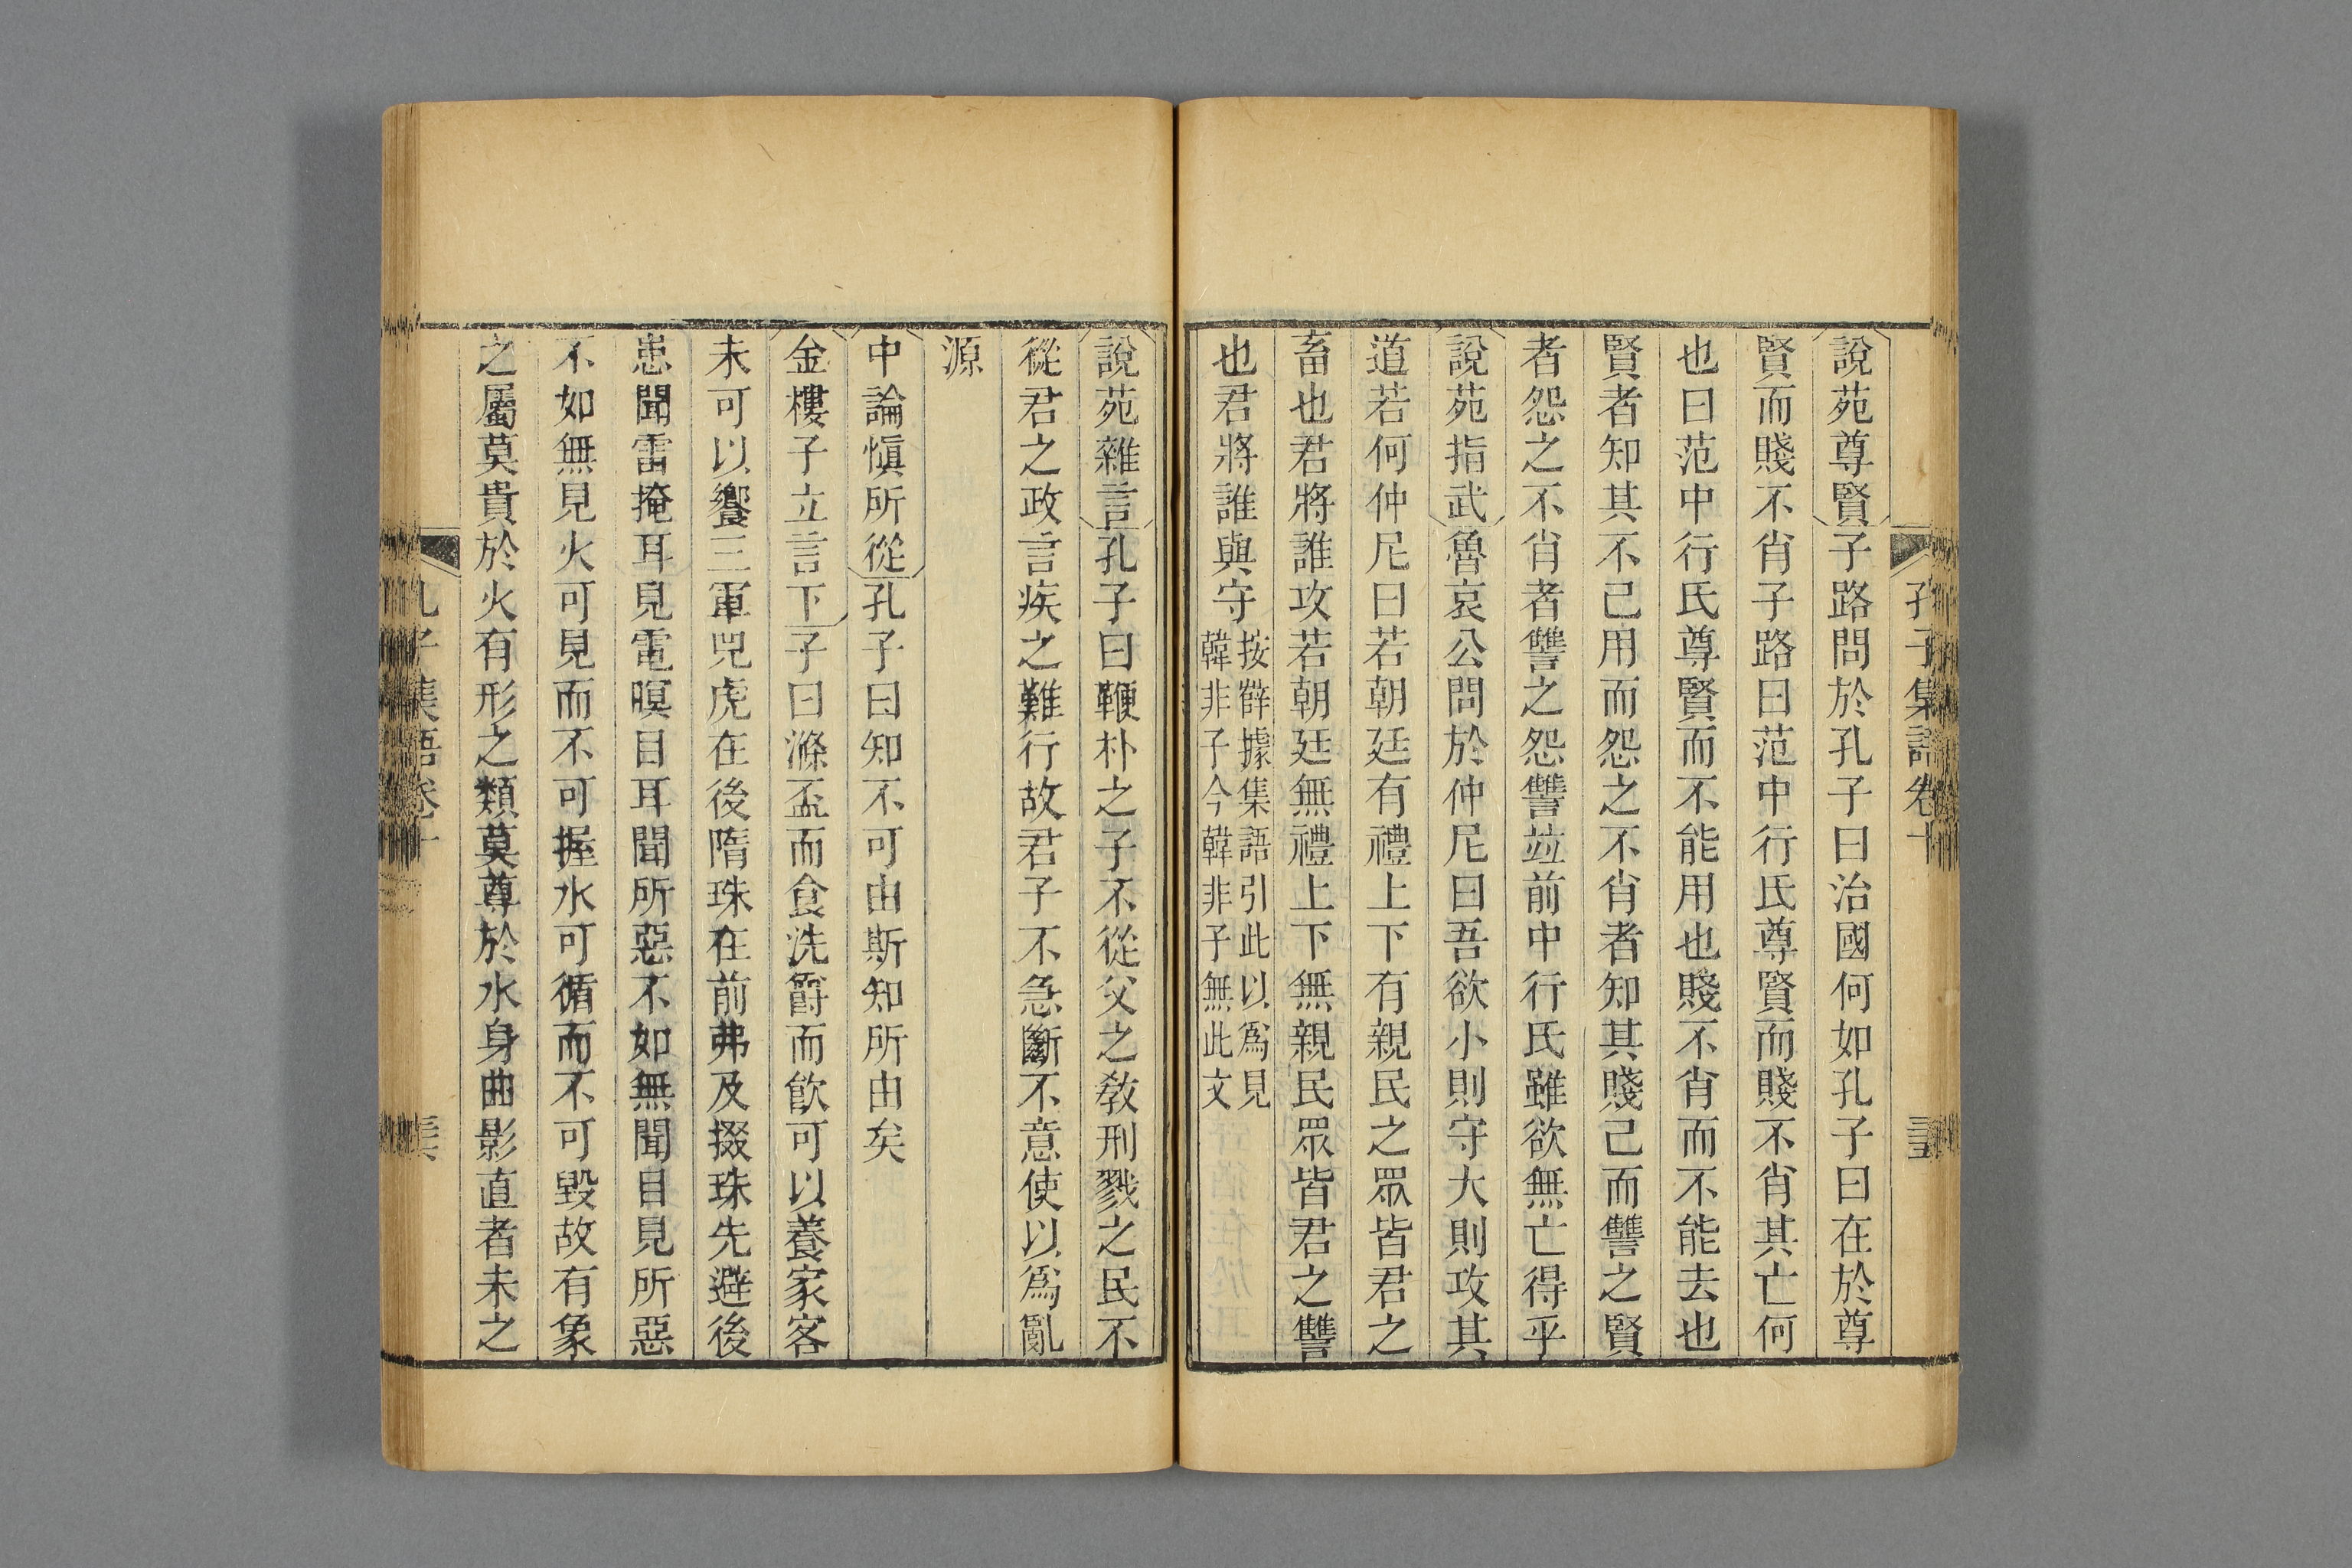 孔子集語卷十
說苑尊賢子路問於孔子曰治國何如孔子曰在於尊
賢而賤不肖子路曰范中行氏尊賢而賤不肖其亡何
也曰范中行氏尊賢而不能用也賤不肖而不能去也
賢者知其不己用而怨之不肖者知其賤己而讐之賢
者怨之不肖者讐之怨讐竝前中行氏雖欲無亡得乎
說苑指武魯哀公問於仲尼曰吾欲小則守大則攻其
道若何仲尼曰若朝廷有禮上下有親民之眾皆君之
畜也君將誰攻若朝廷無禮上下無親民眾皆君之讐
也君將誰與守
按薛據集語引此以爲見
韓非子今韓非子無此文
說苑雜言孔子曰鞭朴之子不從父之敎刑戮之民不
從君之政言疾之難行故君子不急斷不意使以爲亂
源
中論愼所從孔子曰知不可由斯知所由矣
金樓子立言下子曰滌盃而食洗爵而飮可以養家客
未可以饗三軍兕虎在後隋珠在前弗及掇珠先避後
患聞雷掩耳見電瞑目耳聞所惡不如無聞目見所惡
不如無見火可見而不可握水可循而不可毀故有象
之屬莫貴於火有形之類莫尊於水身曲影直者未之
孔子集語卷十